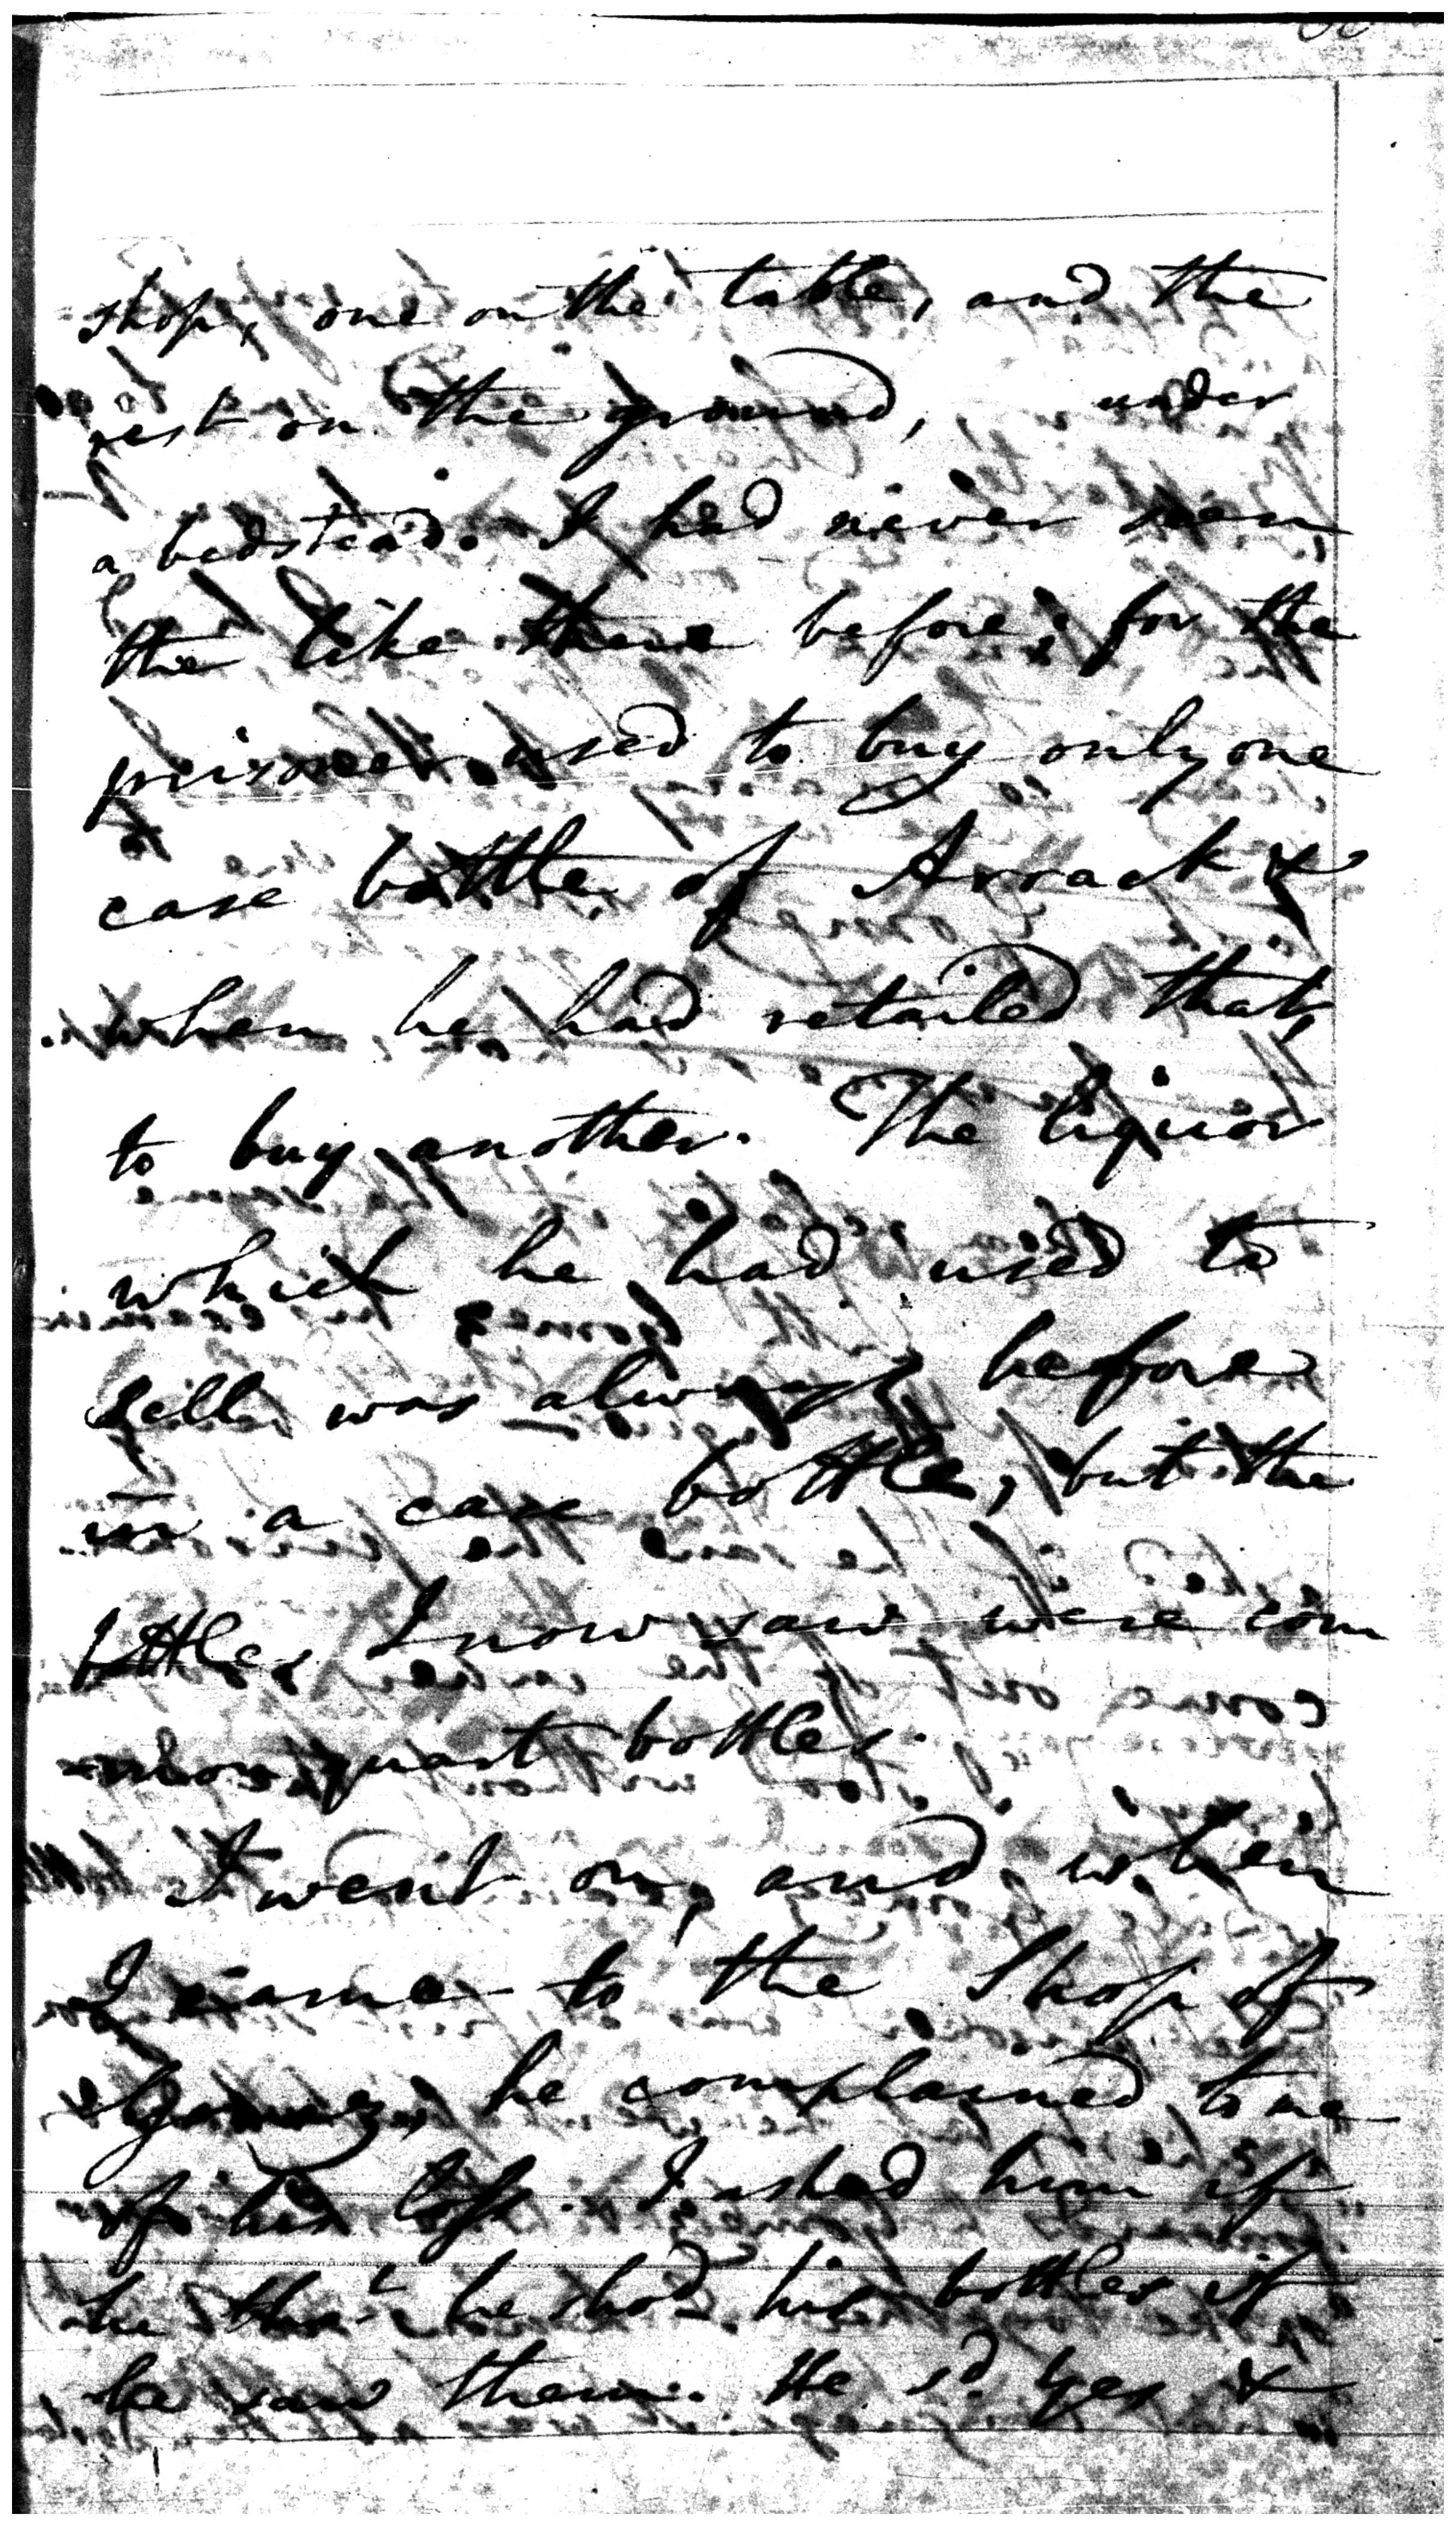 shop, one on the table, and the
rest on the ground, under
a bedstead. I had never seen
the like there before, for the
prisoner used to buy only one
case bottle of Arrack &
when he had retailed that,
to buy another. The liquor
which he had used to
sell was always before
in a case bottle, but the
bottles I now saw were com
-mon quart bottles.
I went on, and when
I came to the Shop of
Gomez, he complained to me
of his loss. I asked him if
he tho't he shod his bottles if
he saw them. He sd. Yes &